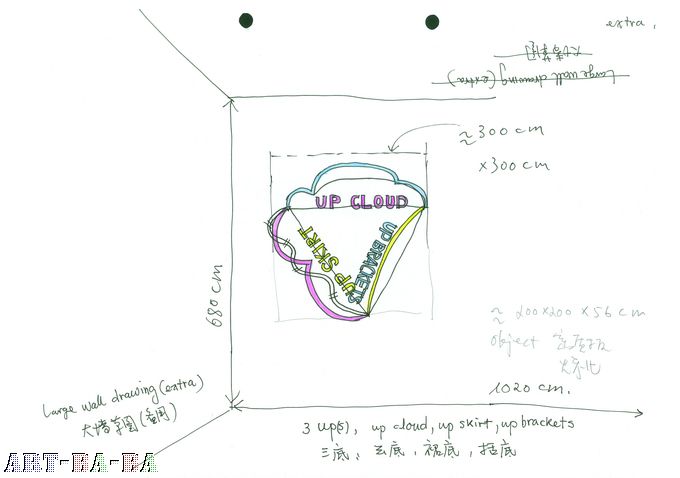 extra,
大牆草圖
Large wall drawing (extra)
≈300 cm
×300 cm
UP CLOUD
UP SKIRT
UP BRACKETS
680 cm
≈ 200×200×56 cm
object
1020 cm.
Large wall drawing (extra)
大牆草圖(備用)
3 up(s), up cloud, up skirt, up brackets
三底、云底,裙底,括底
ART-BA-BA